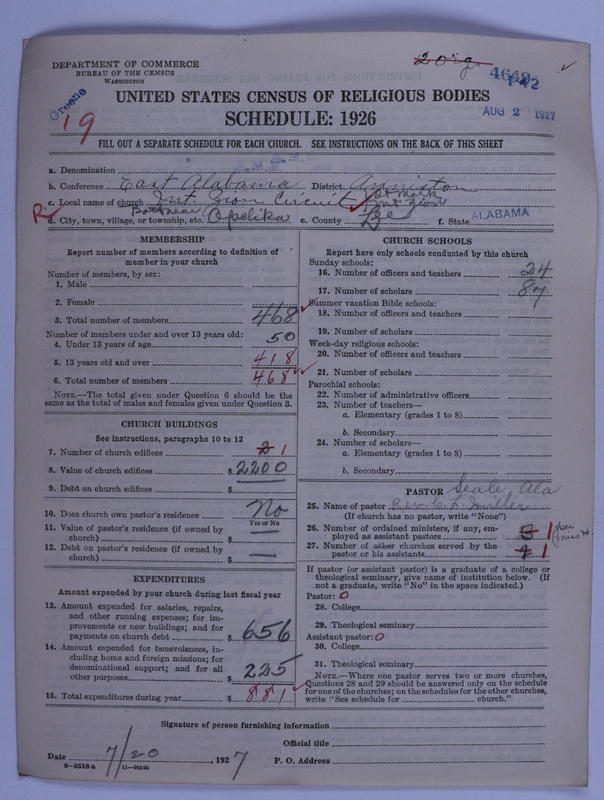 DEPARTMENT OF COMMERCE
BUREAU OF THE CENSUS
WASHINGTON
4649
142
AUG 2 1927
Greene
19
UNITED STATES CENSUS OF RELIGIOUS BODIES
SCHEDULE: 1926
FILL OUT A SEPARATE SCHEDULE FOR EACH CHURCH. SEE INSTRUCTIONS ON THE BACK OF THIS SHEET
a. Denomination
b. Conference East Alabama District Anniston
c. Local name of church Mt. Zion Circuit
R
d. City, town, village, or township, etc. Opelika e. County Lee f. State ALABAMA
MEMBERSHIP
Report number of members according to definition of
member in your church
Number of members, by sex:
1. Male
2. Female
3. Total number of members 468
Number of members under and over 13 years old:
4. Under 13 years of age 50
5. 13 years old and over 418
6. Total number of members 468
NOTE.—The total given under Question 6 should be the
same as the total of males and females given under Question 3.
CHURCH BUILDINGS
See instructions, paragraphs 10 to 12
7. Number of church edifices 2 1
8. Value of church edifices $ 2200
9. Debt on church edifices $
10. Does church own pastor's residence No
Yes or No
11. Value of pastor's residence (if owned by
church) $ —
12. Debt on pastor's residence (if owned by
church) $ —
EXPENDITURES
Amount expended by your church during last fiscal year
13. Amount expended for salaries, repairs,
and other running expenses; for im-
provements or new buildings; and for
payments on church debt $ 656
14. Amount expended for benevolences, in-
cluding home and foreign missions; for
denominational support; and for all
other purposes $ 225
15. Total expenditures during year $ 881
CHURCH SCHOOLS
Report here only schools conducted by this church
Sunday schools:
16. Number of officers and teachers 24
17. Number of scholars 87
Summer vacation Bible schools:
18. Number of officers and teachers
19. Number of scholars
Week-day religious schools:
20. Number of officers and teachers
21. Number of scholars
Parochial schools:
22. Number of administrative officers
23. Number of teachers—
a. Elementary (grades 1 to 8)
b. Secondary
24. Number of scholars—
a. Elementary (grades 1 to 8)
b. Secondary
PASTOR Seale Ala
25. Name of pastor Rev. C. L. Miller
(If church has no pastor, write "None")
26. Number of ordained ministers, if any, em-
ployed as assistant pastors 3 1
27. Number of other churches served by the
pastor or his assistants 1
If pastor (or assistant pastor) is a graduate of a college or
theological seminary, give name of institution below. (If
not a graduate, write "No" in the space indicated.)
Pastor: 0
28. College
29. Theological seminary
Assistant pastor: 0
30. College
31. Theological seminary
NOTE.—Where one pastor serves two or more churches,
Questions 28 and 29 should be answered only on the schedule
for one of the churches; on the schedules for the other churches,
write "See schedule for church."
Signature of person furnishing information
Official title
Date 7/20, 1927 P. O. Address
6—5518 a 11—9554b